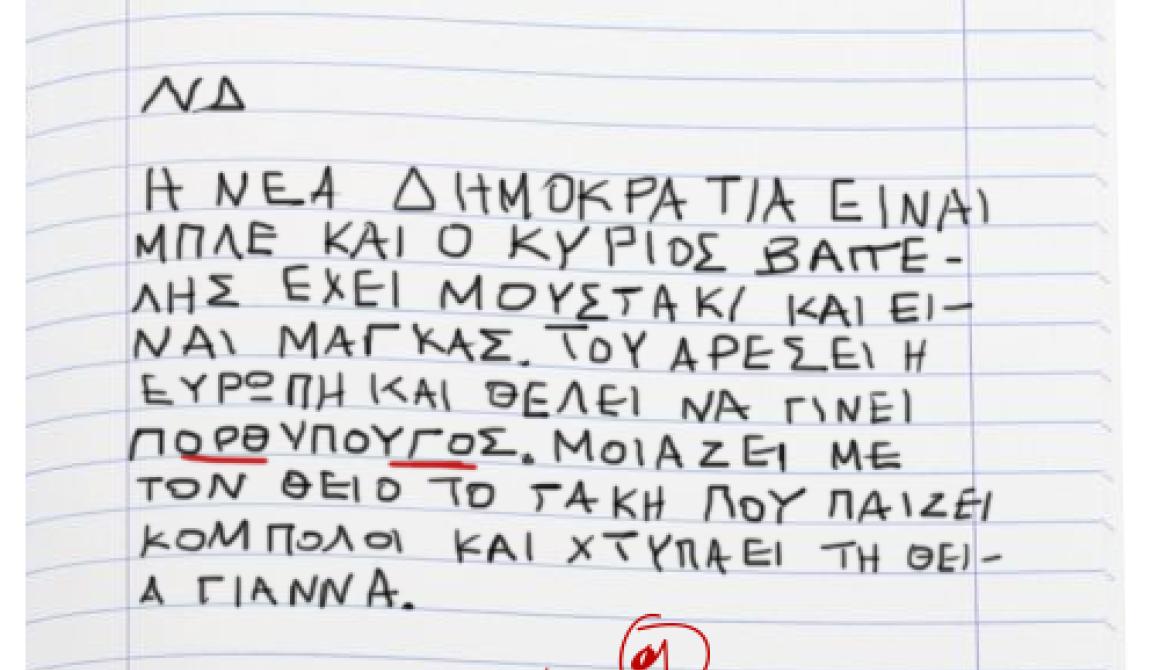 ΝΔ
Η ΝΕΑ ΔΗΜΟΚΡΑΤΙΑ ΕΙΝΑΙ
ΜΠΛΕ ΚΑΙ Ο ΚΥΡΙΟΣ ΒΑΓΓΕ-
ΛΗΣ ΕΧΕΙ ΜΟΥΣΤΑΚΙ ΚΑΙ ΕΙ-
ΝΑΙ ΜΑΓΚΑΣ. ΤΟΥ ΑΡΕΣΕΙ Η
ΕΥΡΩΠΗ ΚΑΙ ΘΕΛΕΙ ΝΑ ΓΙΝΕΙ
ΠΟΡΘΥΠΟΥΓΟΣ. ΜΟΙΑΖΕΙ ΜΕ
ΤΟΝ ΘΕΙΟ ΤΟ ΤΑΚΗ ΠΟΥ ΠΑΙΖΕΙ
ΚΟΜΠΟΛΟΙ ΚΑΙ ΧΤΥΠΑΕΙ ΤΗ ΘΕΙ-
Α ΓΙΑΝΝΑ.